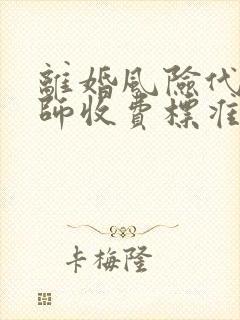 離婚風險代
師收費標准
卡梅隆